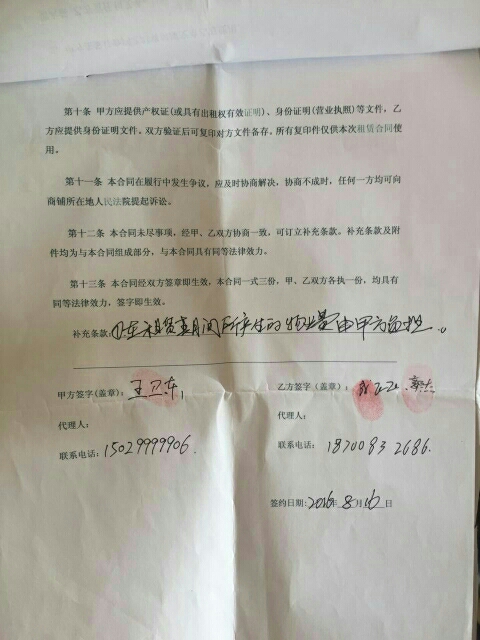 第十条 甲方应提供产权证(或具有出租权有效证明)、身份证明(营业执照)等文件，乙
方应提供身份证明文件。双方验证后可复印对方文件备存。所有复印件仅供本次租赁合同使
用。
第十一条 本合同在履行中发生争议，应及时协商解决，协商不成时，任何一方均可向
商铺所在地人民法院提起诉讼。
第十二条 本合同未尽事项，经甲、乙双方协商一致，可订立补充条款。补充条款及附
件均为与本合同组成部分，与本合同具有同等法律效力。
第十三条 本合同经双方签章即生效，本合同一式三份，甲、乙双方各执一份，均具有
同等法律效力，签字即生效。
补充条款：在租赁期间所产生的物业费由甲方负担。
甲方签字(盖章)： 王卫东 乙方签字（盖章）：
代理人： 代理人：
联系电话：15029999906. 联系电话： 1870083 2686.
签约日期：2016年 8月10日